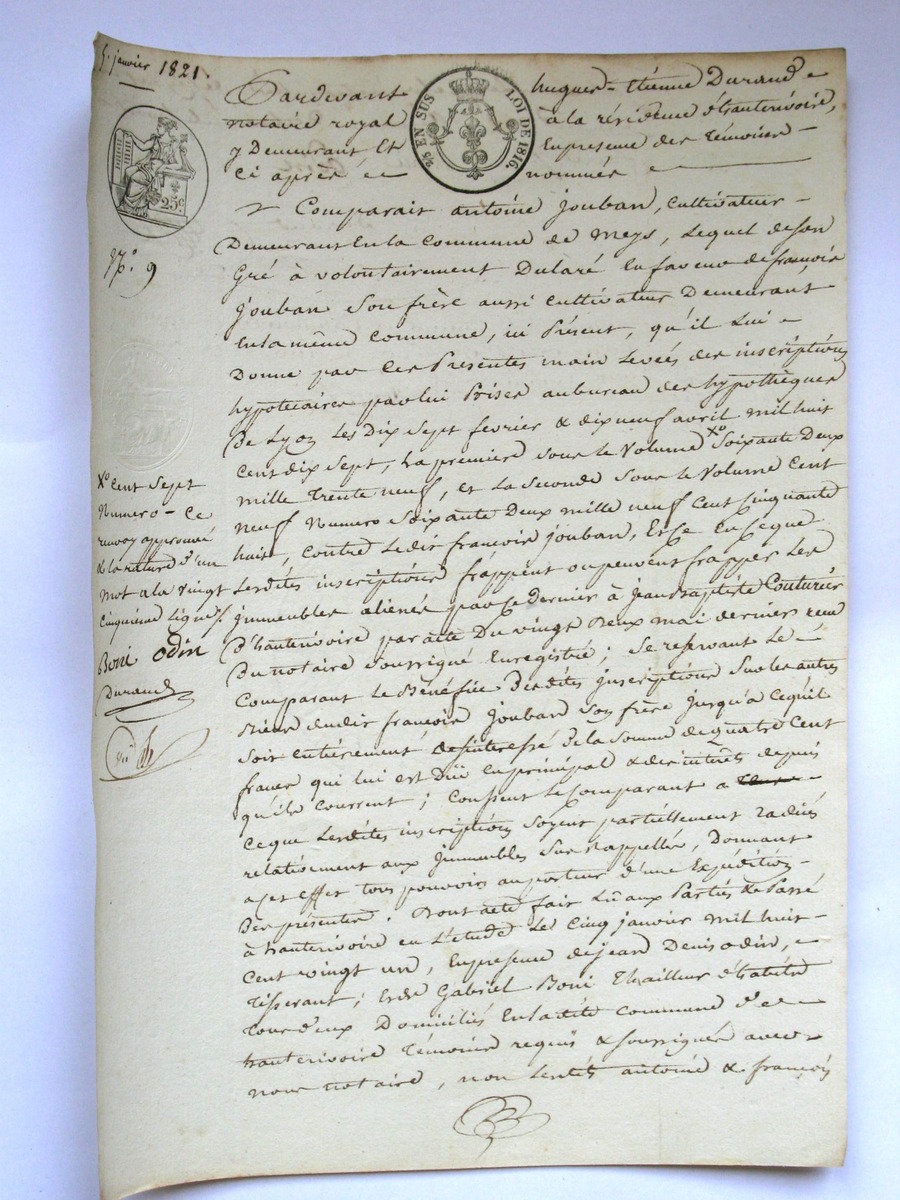 5. janvier 1821.
2/5 EN SUS LOI DE 1816.
25c.
N.o 9
Pardevant hugues-étienne Durand
notaire royal à la résidence d'hauterivoire,
y Demeurant Et En presense des Témoins
Ci après nommés
Comparait antoine jouban, Cultivateur
Demeurant En la Commune de Meys, Lequel de son
Gré à volontairement Déclaré En faveur de françois
jouban Son frère aussi Cultivateur Demeurant
En la même Commune, ici Présent, qu'il Lui
Donne par Ces Presentes main Levées des inscriptions
hypotécaires par lui Prises au bureau des hypothèques
De Lyon Les Dix Sept février & dix neuf avril mil huit
Cent dix Sept, La premiere sous le Volume Xo Soixante Deux
mille Trente neuf, et La Seconde Sous le Volume Cent
neuf Numero Soixante Deux mille neuf Cent Cinquante
huit, Contre Ledit françois jouban, Et Ce En Ceque
Lesdites inscriptions frappent ou peuvent frapper Les
immeubles alienés par Ce Dernier à jean Baptiste Couturier
D'hauterivoire par acte Du vingt Deux mai dernier recu
Du notaire Soussigné Enregistré; Se reservant Le
Comparant Le Bénéfice Desdites inscriptions Sur les autres
Biens dudit françois jouban Son frère jusqu'à Cequ'il
Soit entièrement desinteressé De la Somme de quatre Cent
francs qui lui est Düe En principal & des intérêts depuis
qu'ils Courrent; Consent le Comparant a
Ceque Lesdites inscriptions Soyent partiellement radiées
relativement aux immeubles Sus Rappellés, Donnant
a Cet Effet tous pouvoirs au porteur d'une Expédition
Des présentes. Dont acte fait Lû aux Parties & Passé
à hauterivoire en L'etude Le Cinq janvier mil huit
Cent vingt un, En presense de jean Denis odin,
Tisserant; Et de Gabriel Boni Thailleur d'habits
Tous d'eux Domiciliés En la dite Commune d'
hauterivoire Témoins requis & soussignés avec
nous notaire, non Lesdits antoine & françois
Xo Cent Sept
Numero - Ce
renvoy approuvé
& la rature d'un
mot a la vingt
Cinquième Ligne.
Boni odin
Durand